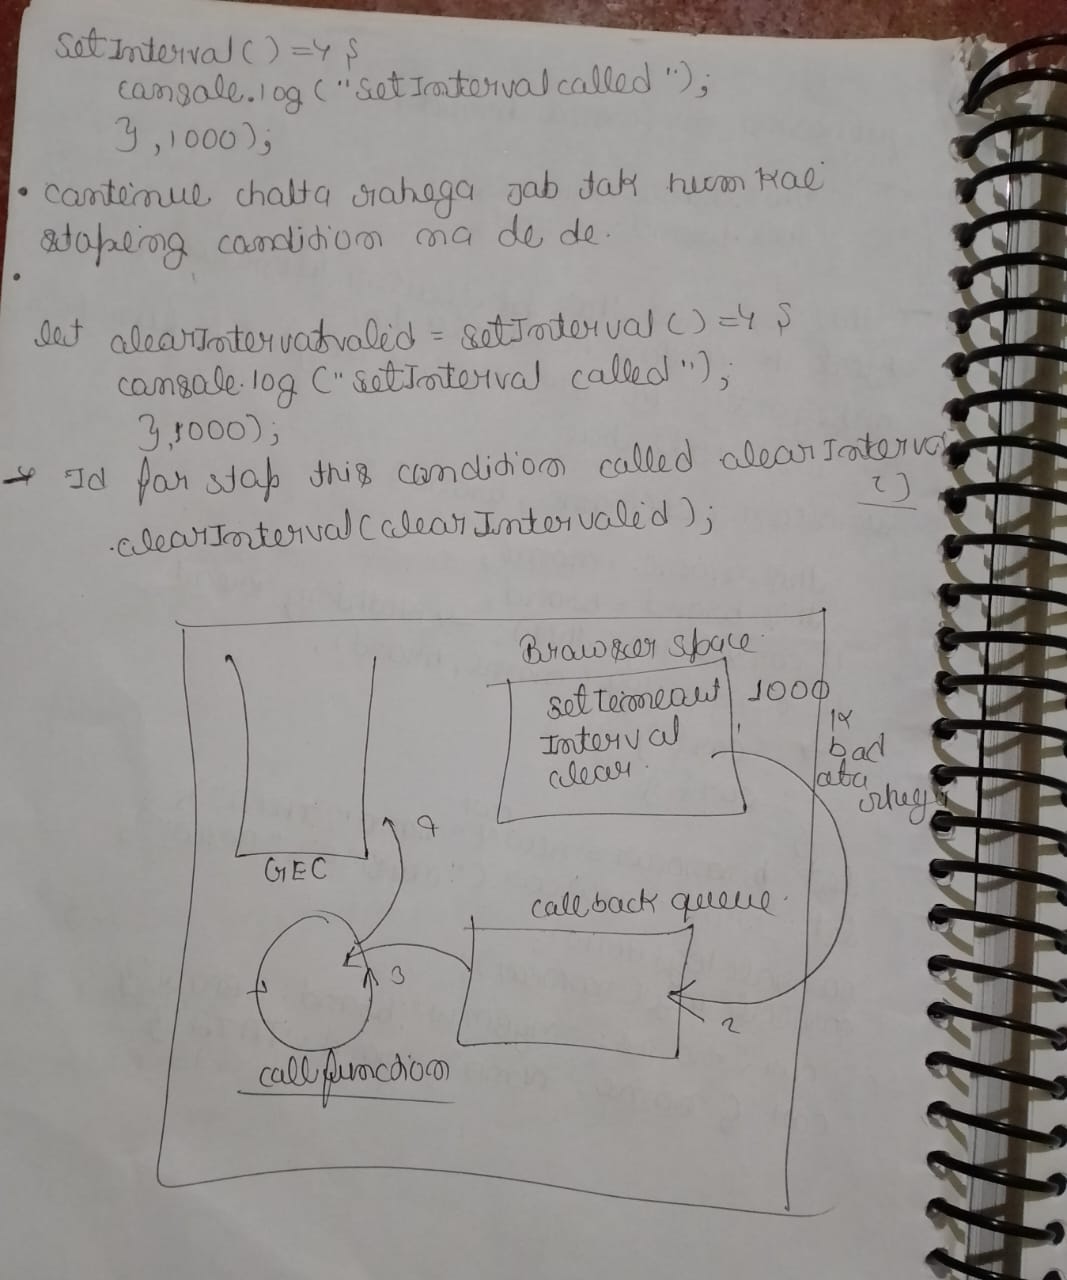 setInterval() => {
console.log("setInterval called");
},1000);
• continue chalta rahega jab tak hum koi
stoping condition na de de.
•
let clearIntervalid = setInterval() => {
console.log("setInterval called");
},1000);
→ Id for stop this condition called clearInterval
()
clearInterval(clearIntervalid);
Browser space
setTimeout 1000
Interval
clear
bad
ata
rhega
4
GEC
callback queue
3
2
call function